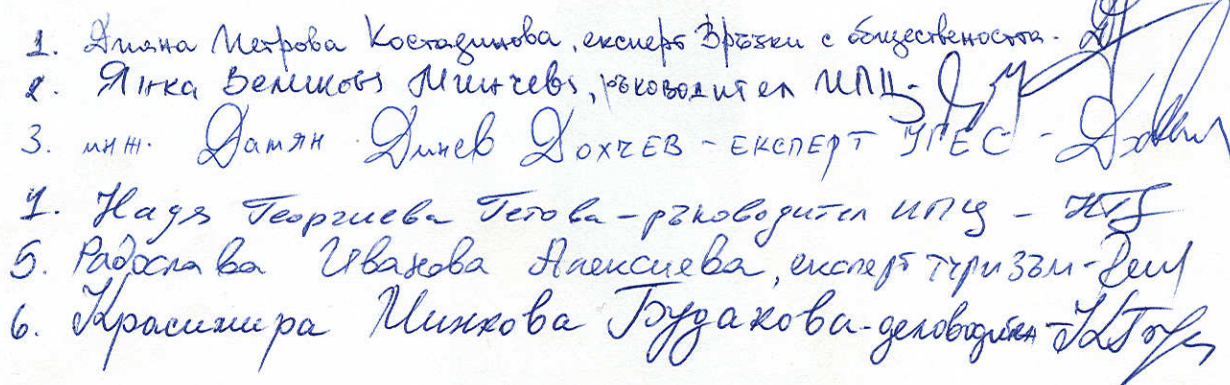 1. Диана Петрова Костадинова, експерт Връзки с обществеността.
2. Янка Великова Минчева, ръководител ИПЦ -
3. инж. Дамян Динев Дохчев - експерт УПЕС -
4. Надя Георгиева Гетова - ръководител ИПЦ -
5. Радослава Иванова Алексиева, експерт туризъм -
6. Красимира Минкова Будакова - деловодител -